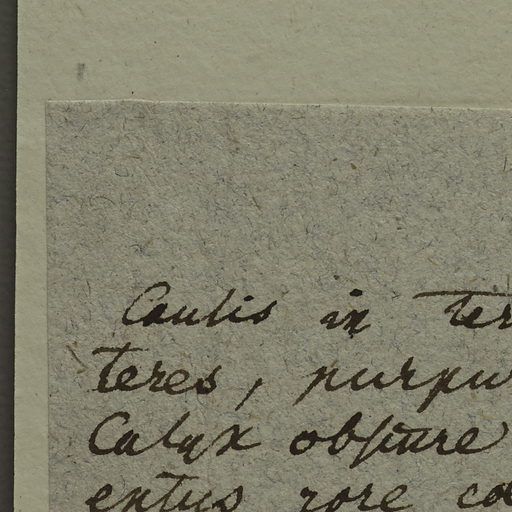 Caulis in ter
teres, purpu
Calyx obscure
entus rore co